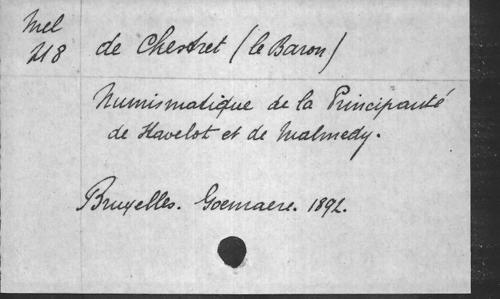 Mel
218
de Chestret (le Baron)
Numismatique de la Principauté
de Stavelot et de Malmedy.
Bruxelles. Goemaere. 1892.